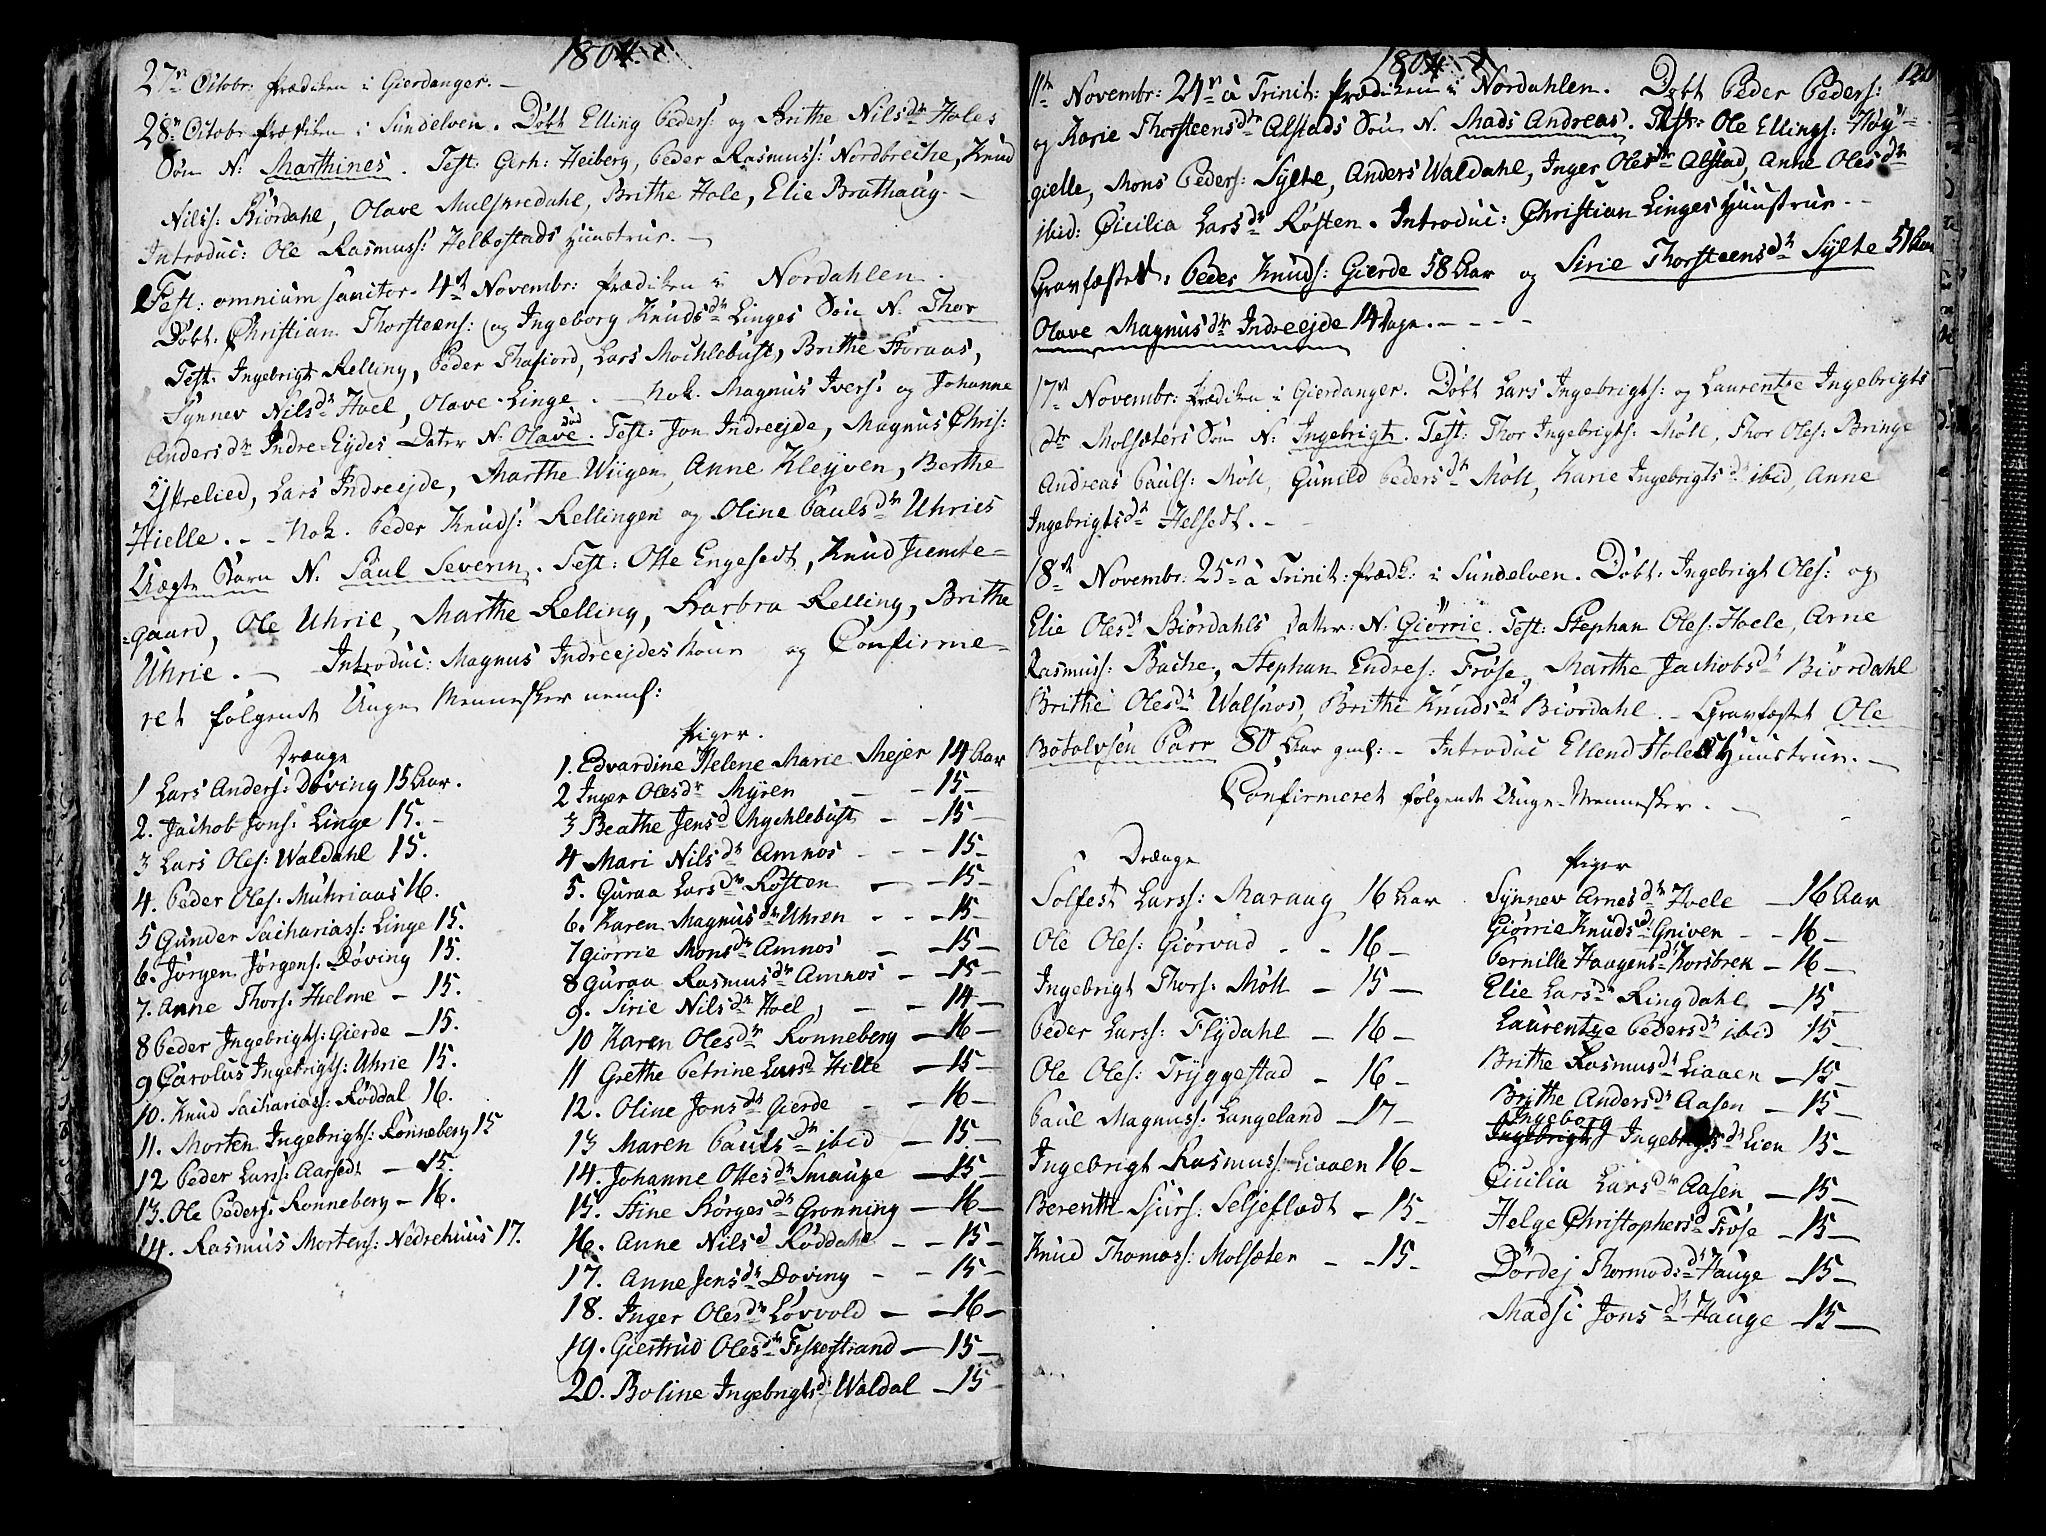 1804.
27de Octobr: Prædiken i Gierdanger. –
28de Octobr Prædiken i Sundelven. Døbt Elling Peders: og Brithe Nilsdtr Holes
Søn N: Marthines. Test: Gerh: Heiberg, Peder Rasmuss: Nordbreche, Knud
Nilss: Biørdahl, Olave Mulsvredahl, Brithe Hole, Elie Brathaug. –
Introduc: Ole Rasmuss: Helbostads Huustrue. –
Fest: omnium sanctor. 4de Novembr: Prædiken i Nordahlen.
Døbt. Christian Thorsteens: og Ingeborg Knudsdtr Linges Søn N: Thor
Test: Ingebrigt Relling, Peder Thafiord, Lars Mochlebust, Brithe Horaas,
Synnev Nilsdtr Hoel, Olave Linge. – Nok. Magnus Ivers: og Johanne
Andersdtr Indre-Eydes Dater N: Olave. Test: Jon Indreejde, Magnus Chris:
Ytrelied, Lars Indreejde, Marthe Wiigen, Anne Kleyven, Berthe
Hielle. – Nok. Peder Knuds: Rellingen og Oline Paulsdtr Uhries
Uægte Barn N: Paul Severin. Test: Otte Engesedt, Knud Jremte=
=gaard, Ole Uhrie, Marthe Relling, Barbra Relling, Brithe
Uhrie. – Introduc: Magnus Indreejdes Kone og Confirme=
ret følgende Unge Mennesker neml:
Drænge
1 Lars Anders: Døving 15 Aar.
2. Jachob Jons: Linge 15. –
3 Lars Oles: Waldahl 15.
4. Peder Oles: Muhriaas 16.
5 Gunder Sacharias: Linge 15.
6. Jørgen Jørgens: Døving 15.
7. Anne Thors: Hielme – 15.
8 Peder Ingebrigts: Gierde – 15.
9 Carolus Ingebrigts: Uhrie 15.
10. Knud Sacharias: Røddal 16.
11. Morten Ingebrigts: Rønneberg 15
12 Peder Larss: Aarsedt – 15.
13. Ole Peders: Rønneberg – 16.
14. Rasmus Mortens: Nedrehuus 17.
Piger.
1. Edvardine Helene Marie Mejer 14 Aar
2 Inger Olesdtr Myren – – 15 –
3 Beathe Jensd Mychlebust – – 15 –
4 Mari Nilsdtr Amnos – – – 15 –
5. Guraa Larsdtr Røsten – – 15 –
6. Karen Magnusdtr Uhren – – – 15 –
7 Giørrie Monsdtr Amnos – – 15 –
8 Guraa Rasmusdtr Amnos – – 15 –
9. Sirie Nilsdtr Hoel, – – 14 –
10 Karen Olesdtr Rønneberg – 16 –
11 Grethe Petrine Larsd Hille – 15 –
12. Oline Jonsdtr Gierde – – 16 –
13 Maren Paulsdtr ibid – 15 –
14. Johanne Ottesdtr Smauge – 15 –
15. Stine Børgesdtr Grønning – 16 –
16. Anne Nilsd Røddahl – – 15 –
17. Anne Jensdtr Døving – – 15 –
18. Inger Olesdtr Løvvold – – 16 –
19. Giertrud Olesdtr Fiskerstrand – 15 –
20. Boline Ingebrigtsdtr Waldal – 15 –
1804
120
11te Novembr: 24de à Trinit: Prædiken i Nordahlen. Døbt Peder Peders:
og Karie Thorsteensdtr Alstads Søn N. Mads Andreas. Test: Ole Ellings: Høy=
gielle, Mons Peders: Sylte, Anders Waldahl, Inger Olesdtr Alstad, Anne Olesdtr
ibid: Cicilia Larsdtr Røsten. Introduc: Christian Linges Huustrue. –
Gravfæstet: Peder Knuds: Gierde 58 Aar og Sirie Thorsteensdtr Sylte 51 Aar
Olave Magnusdtr Indreejde 14 Dage. – – – –
17de Novembr: Prædiken i Gierdanger. Døbt Lars Ingebrigts: og Laurentze Ingebrigts
dtr Molsæters Søn N: Ingebrigt. Test: Thor Ingebrigts: Møll, Thor Oles: Bringe
Andreas Pauls: Møll, Gunild Pedersdtr Møll, Karie Ingebrigtsdtr ibid, Anne
Ingebrigtsdtr Helsedt. –
18de Novembr: 25de à Trinit: Prædik: i Sundelven. Døbt: Ingebrigt Oles: og
Elie Olesdtr Biørdahls Datter: N. Giørrie. Test: Stephan Oles: Hoele, Arne
Rasmuss: Bache, Stephan Endres: Frøse, Marthe Jachobsdtr Biørdahl
Brithe Olesdtr Walsnos, Brithe Knudsdtr Biørdahl. – Gravfæstet Ole
Botolvsen Parr 80 Aar gml: – Introduc Ellend Holes Huustrue. –
Confirmeret følgende Unge Mennesker. –
Drænge
Solfest Larss: Maraag 16 Aar
Ole Oles: Giørvad – – 16 –
Ingebrigt Thors: Møll – 15 –
Peder Larss: Flydahl – 16 –
Ole Oles: Tryggestad – 16 –
Paul Magnuss: Langeland – 17 –
Ingebrigt Rasmuss: Liaaen 16 –
Berenth Sjurs: Seljeflodt – 15 –
Knud Thomass: Molsæter – – 15 –
Piger
Synnev Arnesdtr Hoele – 16 Aar
Giørrie Knudsd: Gniven – – 16 –
Pernille Haagensdtr Korsbrek – 16 –
Elie Larsdtr Ringdahl – 15 –
Laurentze Pedersdtr ibid 15 –
Brithe Rasmusdtr Liaaen – 15 –
Brithe Andersdtr Aasen – 15 –
Ingeborg
Ingebrigt Ingebrigtsdtr Lien 15 –
Cicilia Larsdtr Aasen – 15 –
Helge Christophersd Frøse – 15 –
Dordej Thormodsdtr Hauge – 15 –
Madsi Jonsdtr Hauge – 15 –